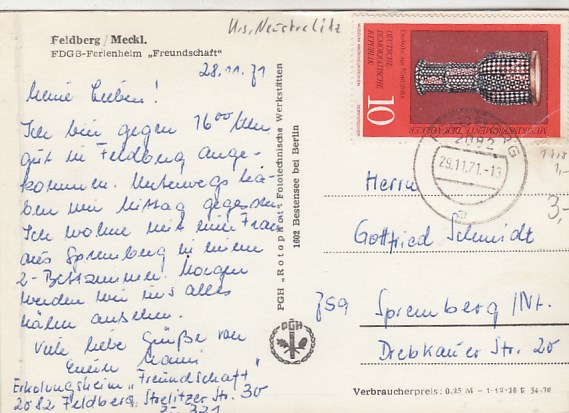 Krs. Neustrelitz
Feldberg / Meckl.
FDGB-Ferienheim „Freundschaft"
28.11.71
Meine Lieben!
Ich bin gegen 16⁰⁰ Uhr
gut in Feldberg ange-
kommen. Unterwegs ha-
ben wir Mittag gegessen.
Ich wohne mit einer Frau
aus Spremberg in einem
2-Bettzimmer. Morgen
werden wir uns alles
näher ansehen.
Viele liebe Grüße von
Eurer Mami
Erholungsheim „Freundschaft"
2082 Feldberg, Strelitzer Str. 30
Z. 321
PGH „Rotophot" Fotofechnische Werkstätten
1602 Bestensee bei Berlin
PGH
DEUTSCHE
DEMOKRATISCHE
REPUBLIK
10
MUSIKINSTRUMENTE DER VÖLKER
2082
29.11.71.-13
1,-
3,-
Herrn
Gottfried Schmidt
759 Spremberg /Nl.
Drebkauer Str. 20
Verbraucherpreis: 0,25 M